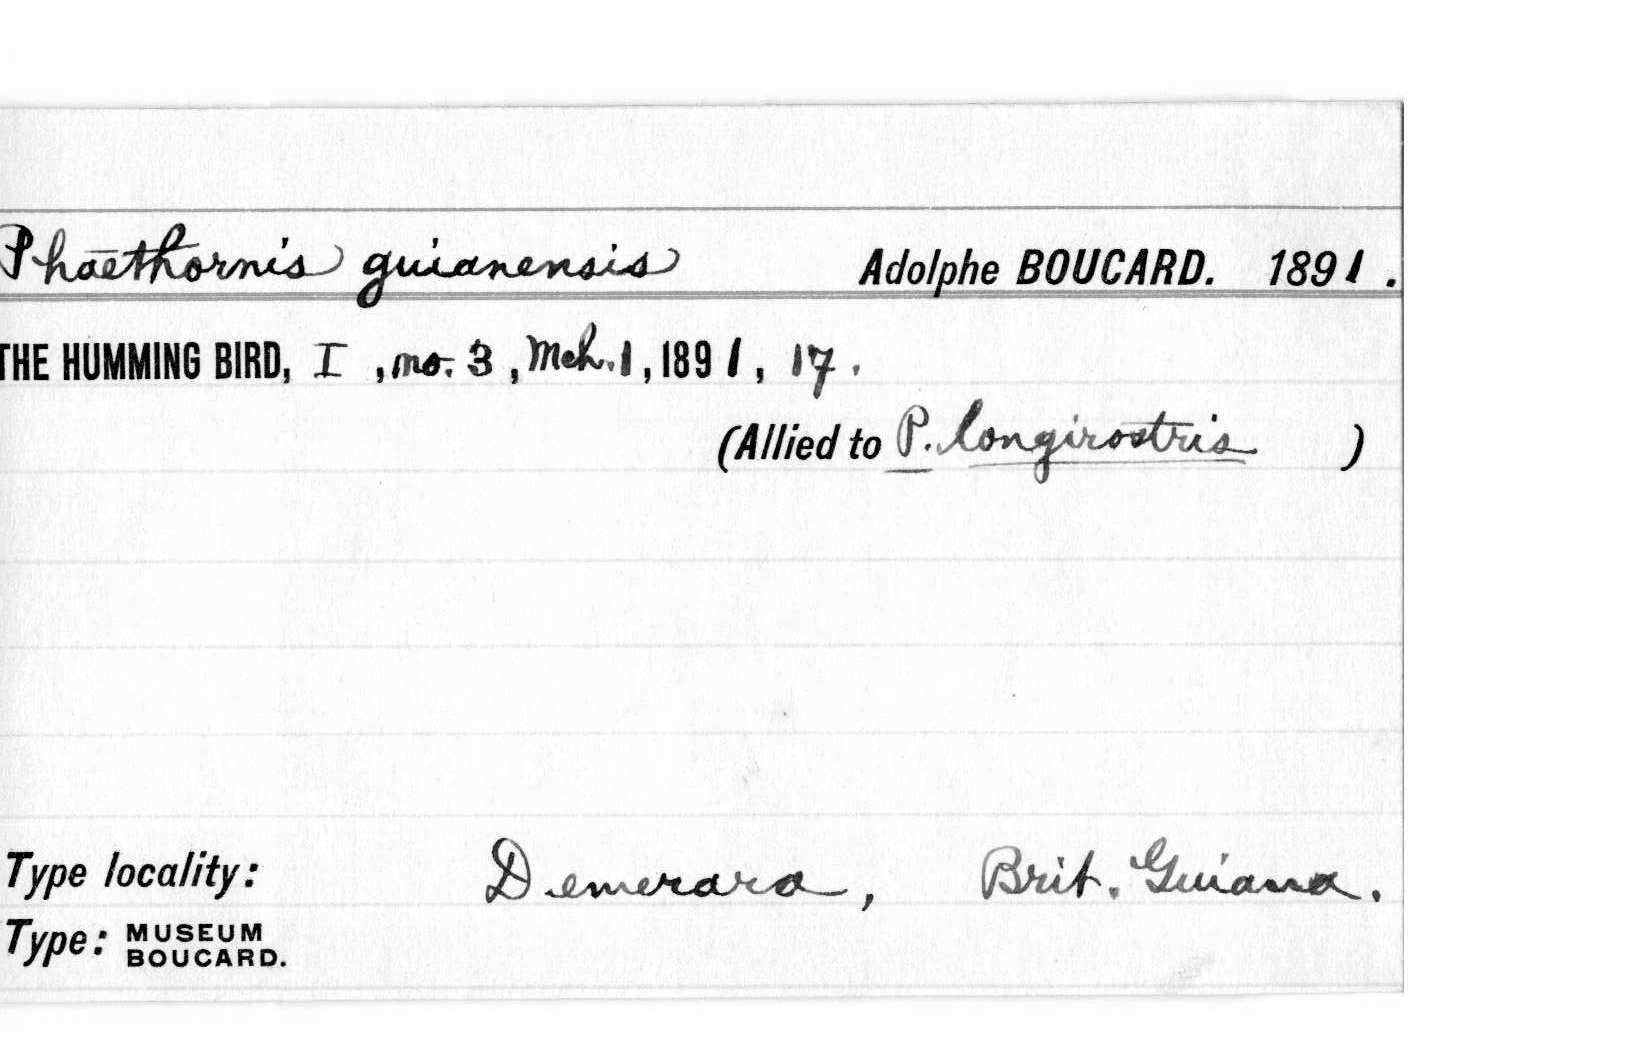 Phaethornis guianensis Adolphe BOUCARD. 1891.
THE HUMMING BIRD, I, no. 3, Mch. 1, 1891, 17.
(Allied to P. longirostris)
Type locality: Demerara, Brit. Guiana.
Type: MUSEUM BOUCARD.